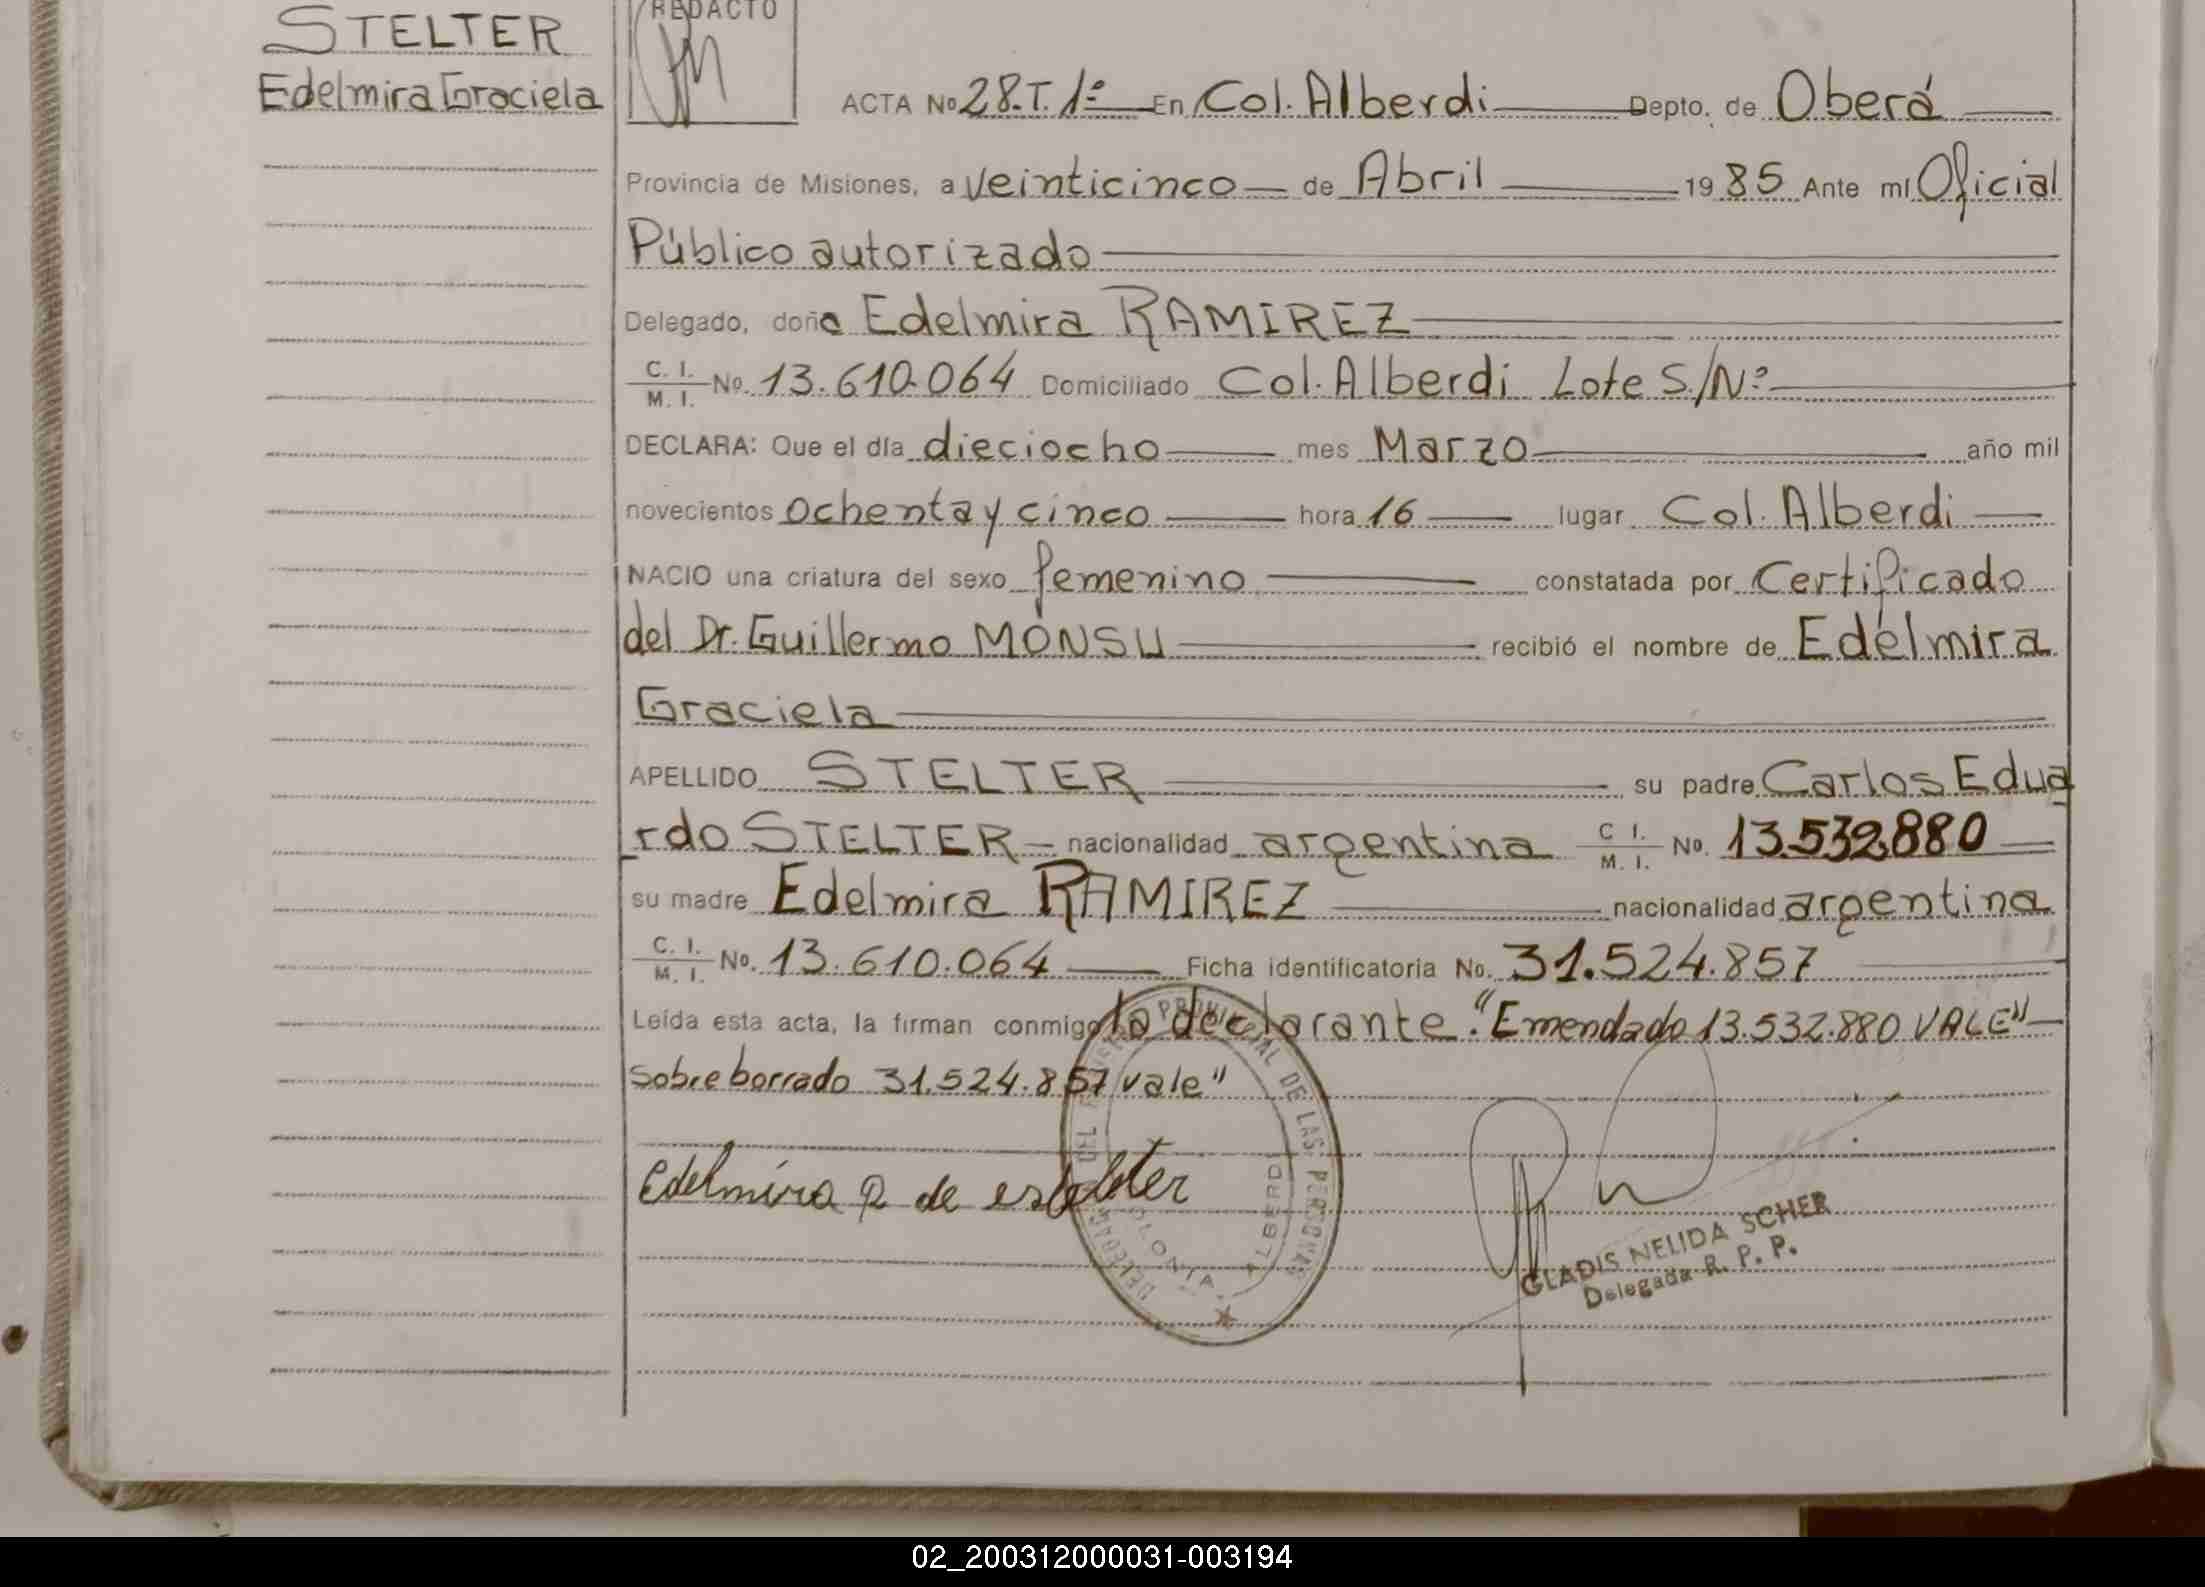 STELTER
Edelmira Graciela
REDACTO
ACTA No 28.T. 1º En Col. Alberdi Depto. de Oberá
Provincia de Misiones, a veinticinco de Abril 1985 Ante mí Oficial
Público autorizado
Delegado, doña Edelmira RAMIREZ
C. I. M. I. No. 13.610.064 Domiciliado Col. Alberdi Lote S/Nº
DECLARA: Que el día dieciocho mes Marzo año mil
novecientos ochenta y cinco hora 16 lugar Col. Alberdi
NACIO una criatura del sexo femenino constatada por Certificado
del Dr. Guillermo MONSU recibió el nombre de Edelmira
Graciela
APELLIDO STELTER su padre Carlos Edua
rdo STELTER nacionalidad argentina C I. M. I. No. 13.532.880
su madre Edelmira RAMIREZ nacionalidad argentina
C. I. M. I. No. 13.610.064 Ficha identificatoria No. 31.524.857
Leída esta acta, la firman conmigo la declarante. "Emendado 13.532.880 VALE"
Sobre borrado 31.524.857 vale"
Edelmira R de estelter
DELEGACION DEL REGISTRO PROVINCIAL DE LAS PERSONAS
COLONIA ALBERDI
GLADIS NELIDA SCHER
Delegada R. P. P.
02_200312000031-003194